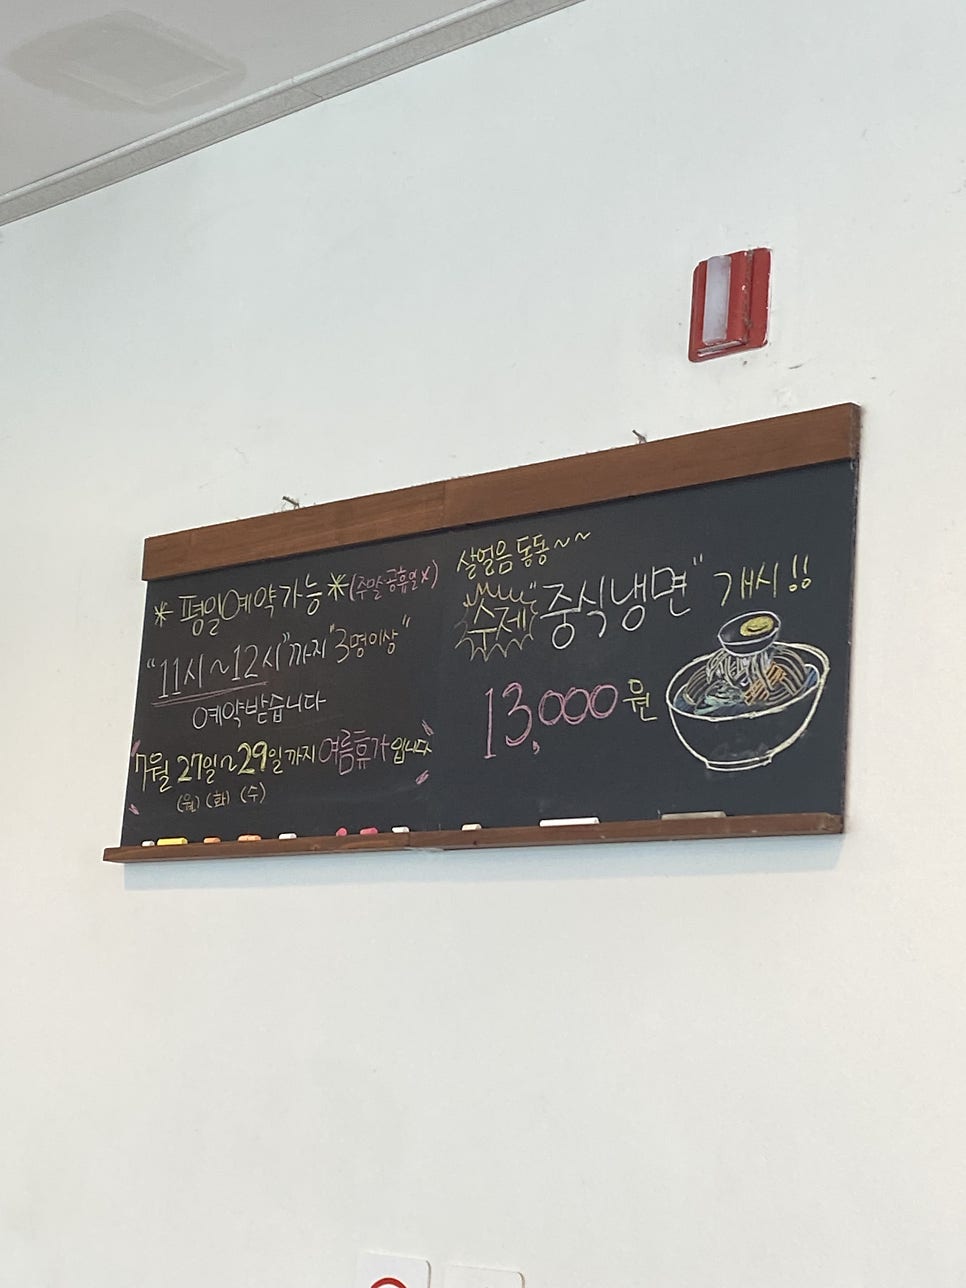 * 평일예약가능 * (주말공휴일x)
"11시~12시"까지 "3명이상"
예약받습니다
7월 27일~29일까지 여름휴가입니다
(월) (화) (수)
살얼음 동동~~
수제 "중식냉면" 개시!!
13,000원